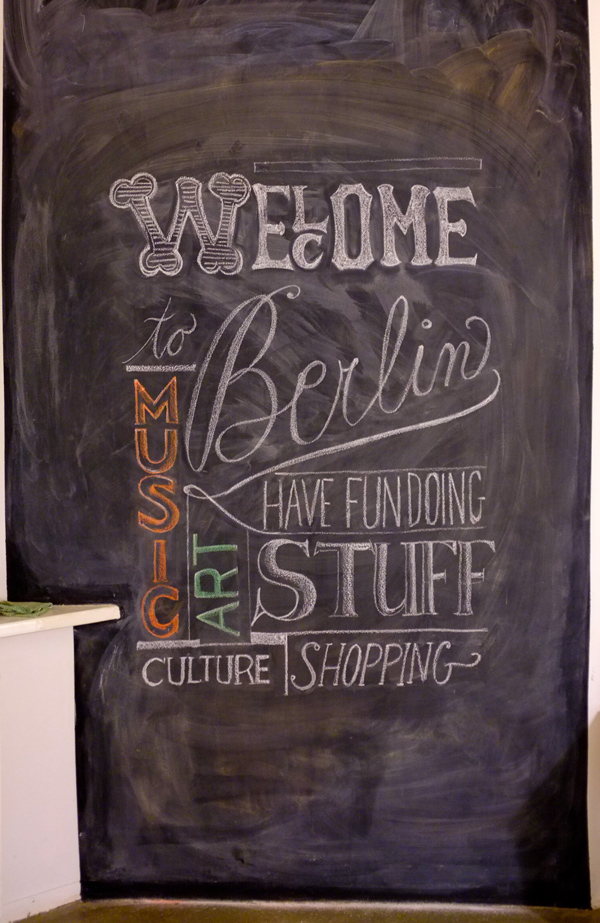 WELCOME
to Berlin
MUSIC
ART
HAVE FUN DOING
STUFF
CULTURE
SHOPPING